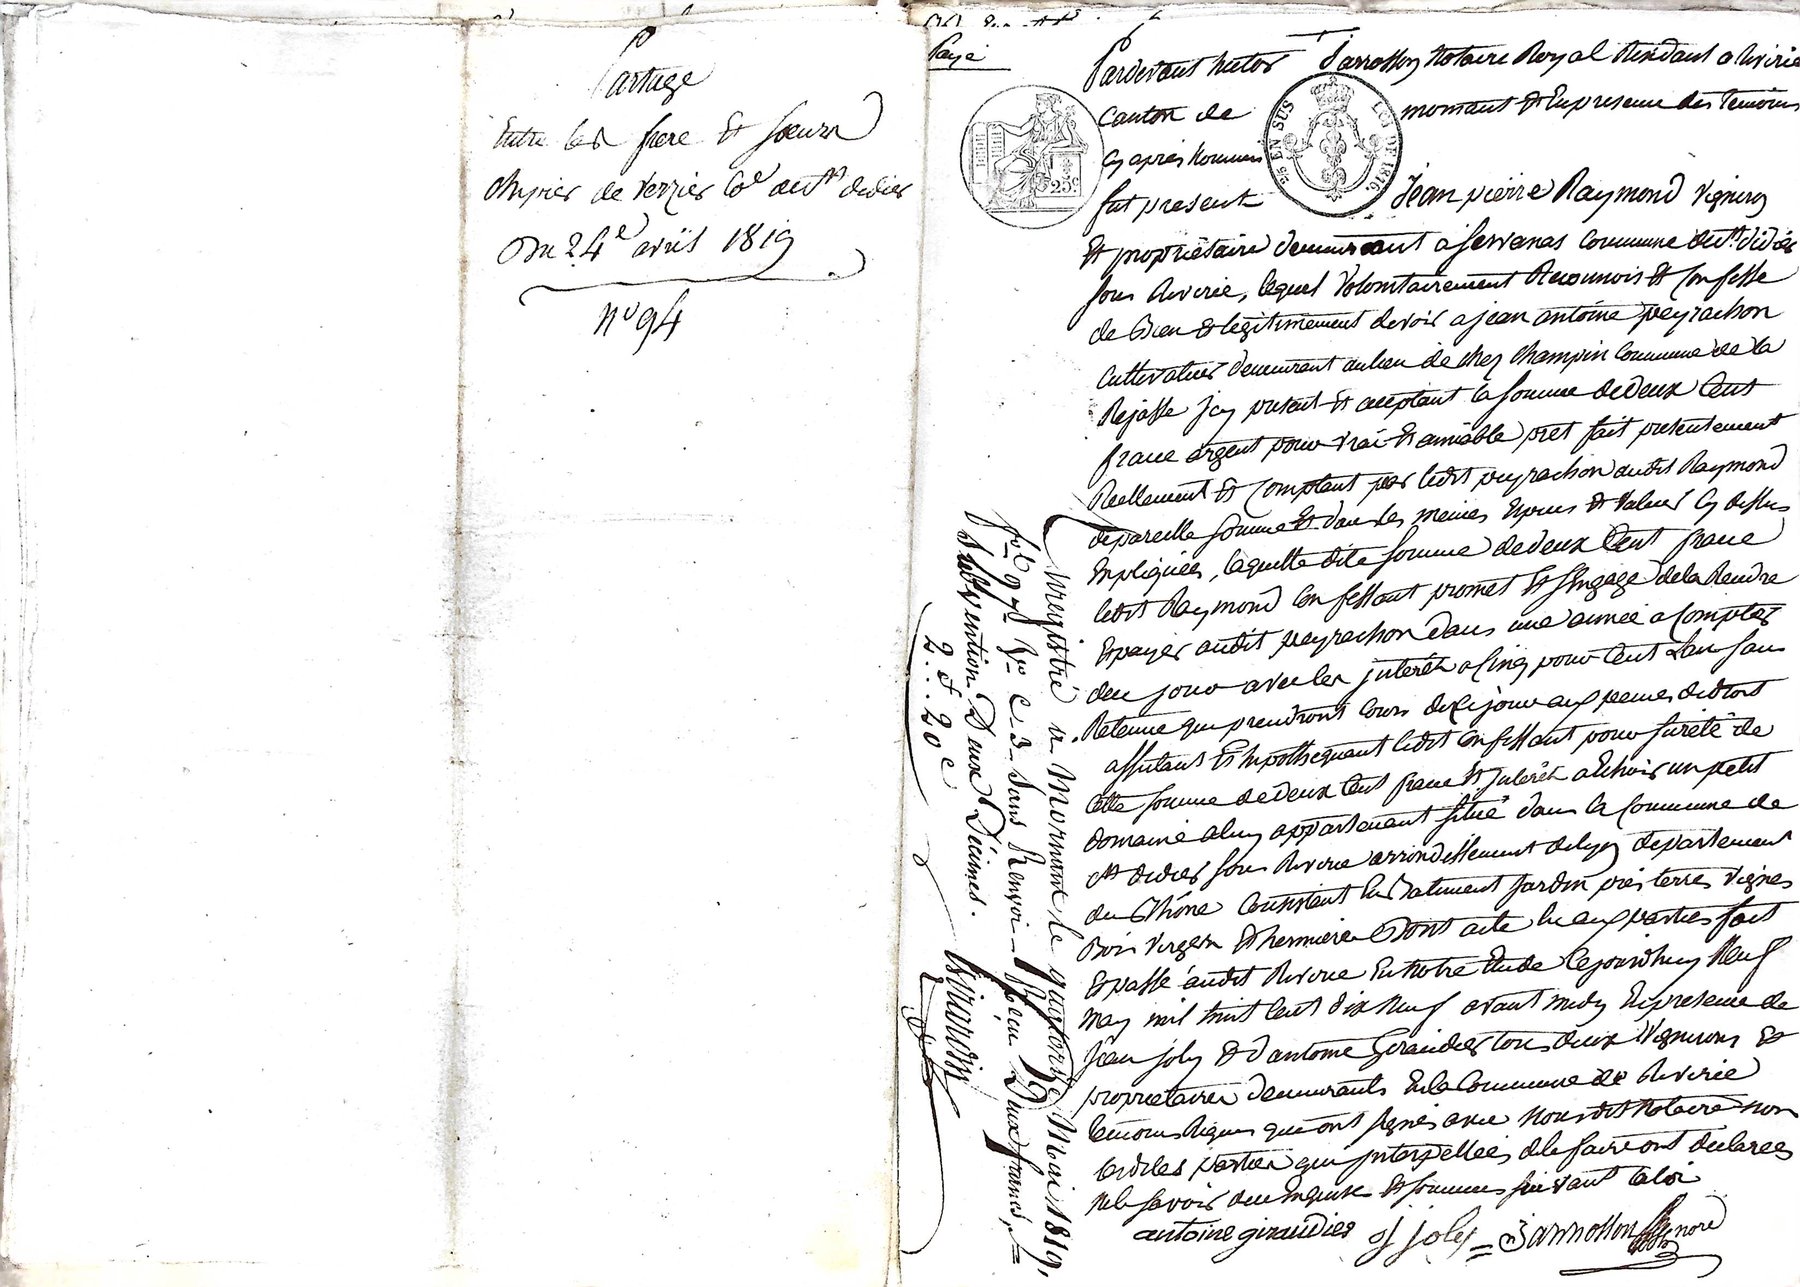 Partage
Entre les frere Et soeurs
Chipier de Verzier Coe de St didier
Du 24e avril 1819
No 94
Payé
Pardevant hector Jarrosson Notaire Royal Residant a Riverie
Canton de mornant Et En presence des Temoins
Cy après Nommés
fut present Jean pierre Raymond Vigneron
Et propriétaire demeurant a servanas Commune de St didier
sous Riverie, lequel Volontairement Reconnois Et Confesse
de Bien & legitimement devoir a jean antoine peyrachon
Cultivateur demeurant au lieu de chez Champin Commune de la
Rejasse Icy present Et acceptant la somme de deux Cent
franc argent pour vrai Et amiable pret fait presentement
Reellement Et Comptant par ledit peyrachon audit Raymond
de pareille somme Et dans les memes Especes Et Valeur Cy dessus
Expliquées, laquelle dite somme de deux Cent franc
ledit Raymond Confessant promet Et s'Engage de la Rendre
Et payer audit peyrachon dans une année a Compter
de ce jour avec les jnterêt a Cinq pour Cent L'an sans
Retenue qui prendront Cours dece jour aux peines de droit
affectant Et hypothequant ledit Confessant pour sureté de
Cette somme de deux Cent franc Et jnterêt a Echoir un petit
domaine a luy appartenant situé dans la Commune de
St didier sous Riverie arrondissement de lyon departement
du Rhône Consistant En Batiment Jardin prés terres Vignes
Bois Vergers Et hermiere Dont acte lu aux parties fait
Et passé audit Riverie En Notre Etude Cejourd'huy Neuf
May mil huit Cent dix Neuf avant midy En presence de
Jean joly Et d'antoine Giraudier tous deux Vignerons Et
proprietaires demeurants En la Commune de Riverie
temoins Requis qui ont signés avec Nous dit Notaire non
lesdites parties qui jnterpellées de le faire ont declarées
Ne le savoir de ce Enquise Et sommes suivant la loi
antoine giraudier J joly = Jarrosson
25 EN SUS
LOI DE 1816.
25c
Enregistré a Mornant le quatorze Mai 1819,
fol 97 Vo C 3 Sans Renvoi Reçu Deux francs,
Subvention Deux Décimes.
2 f. 20 c